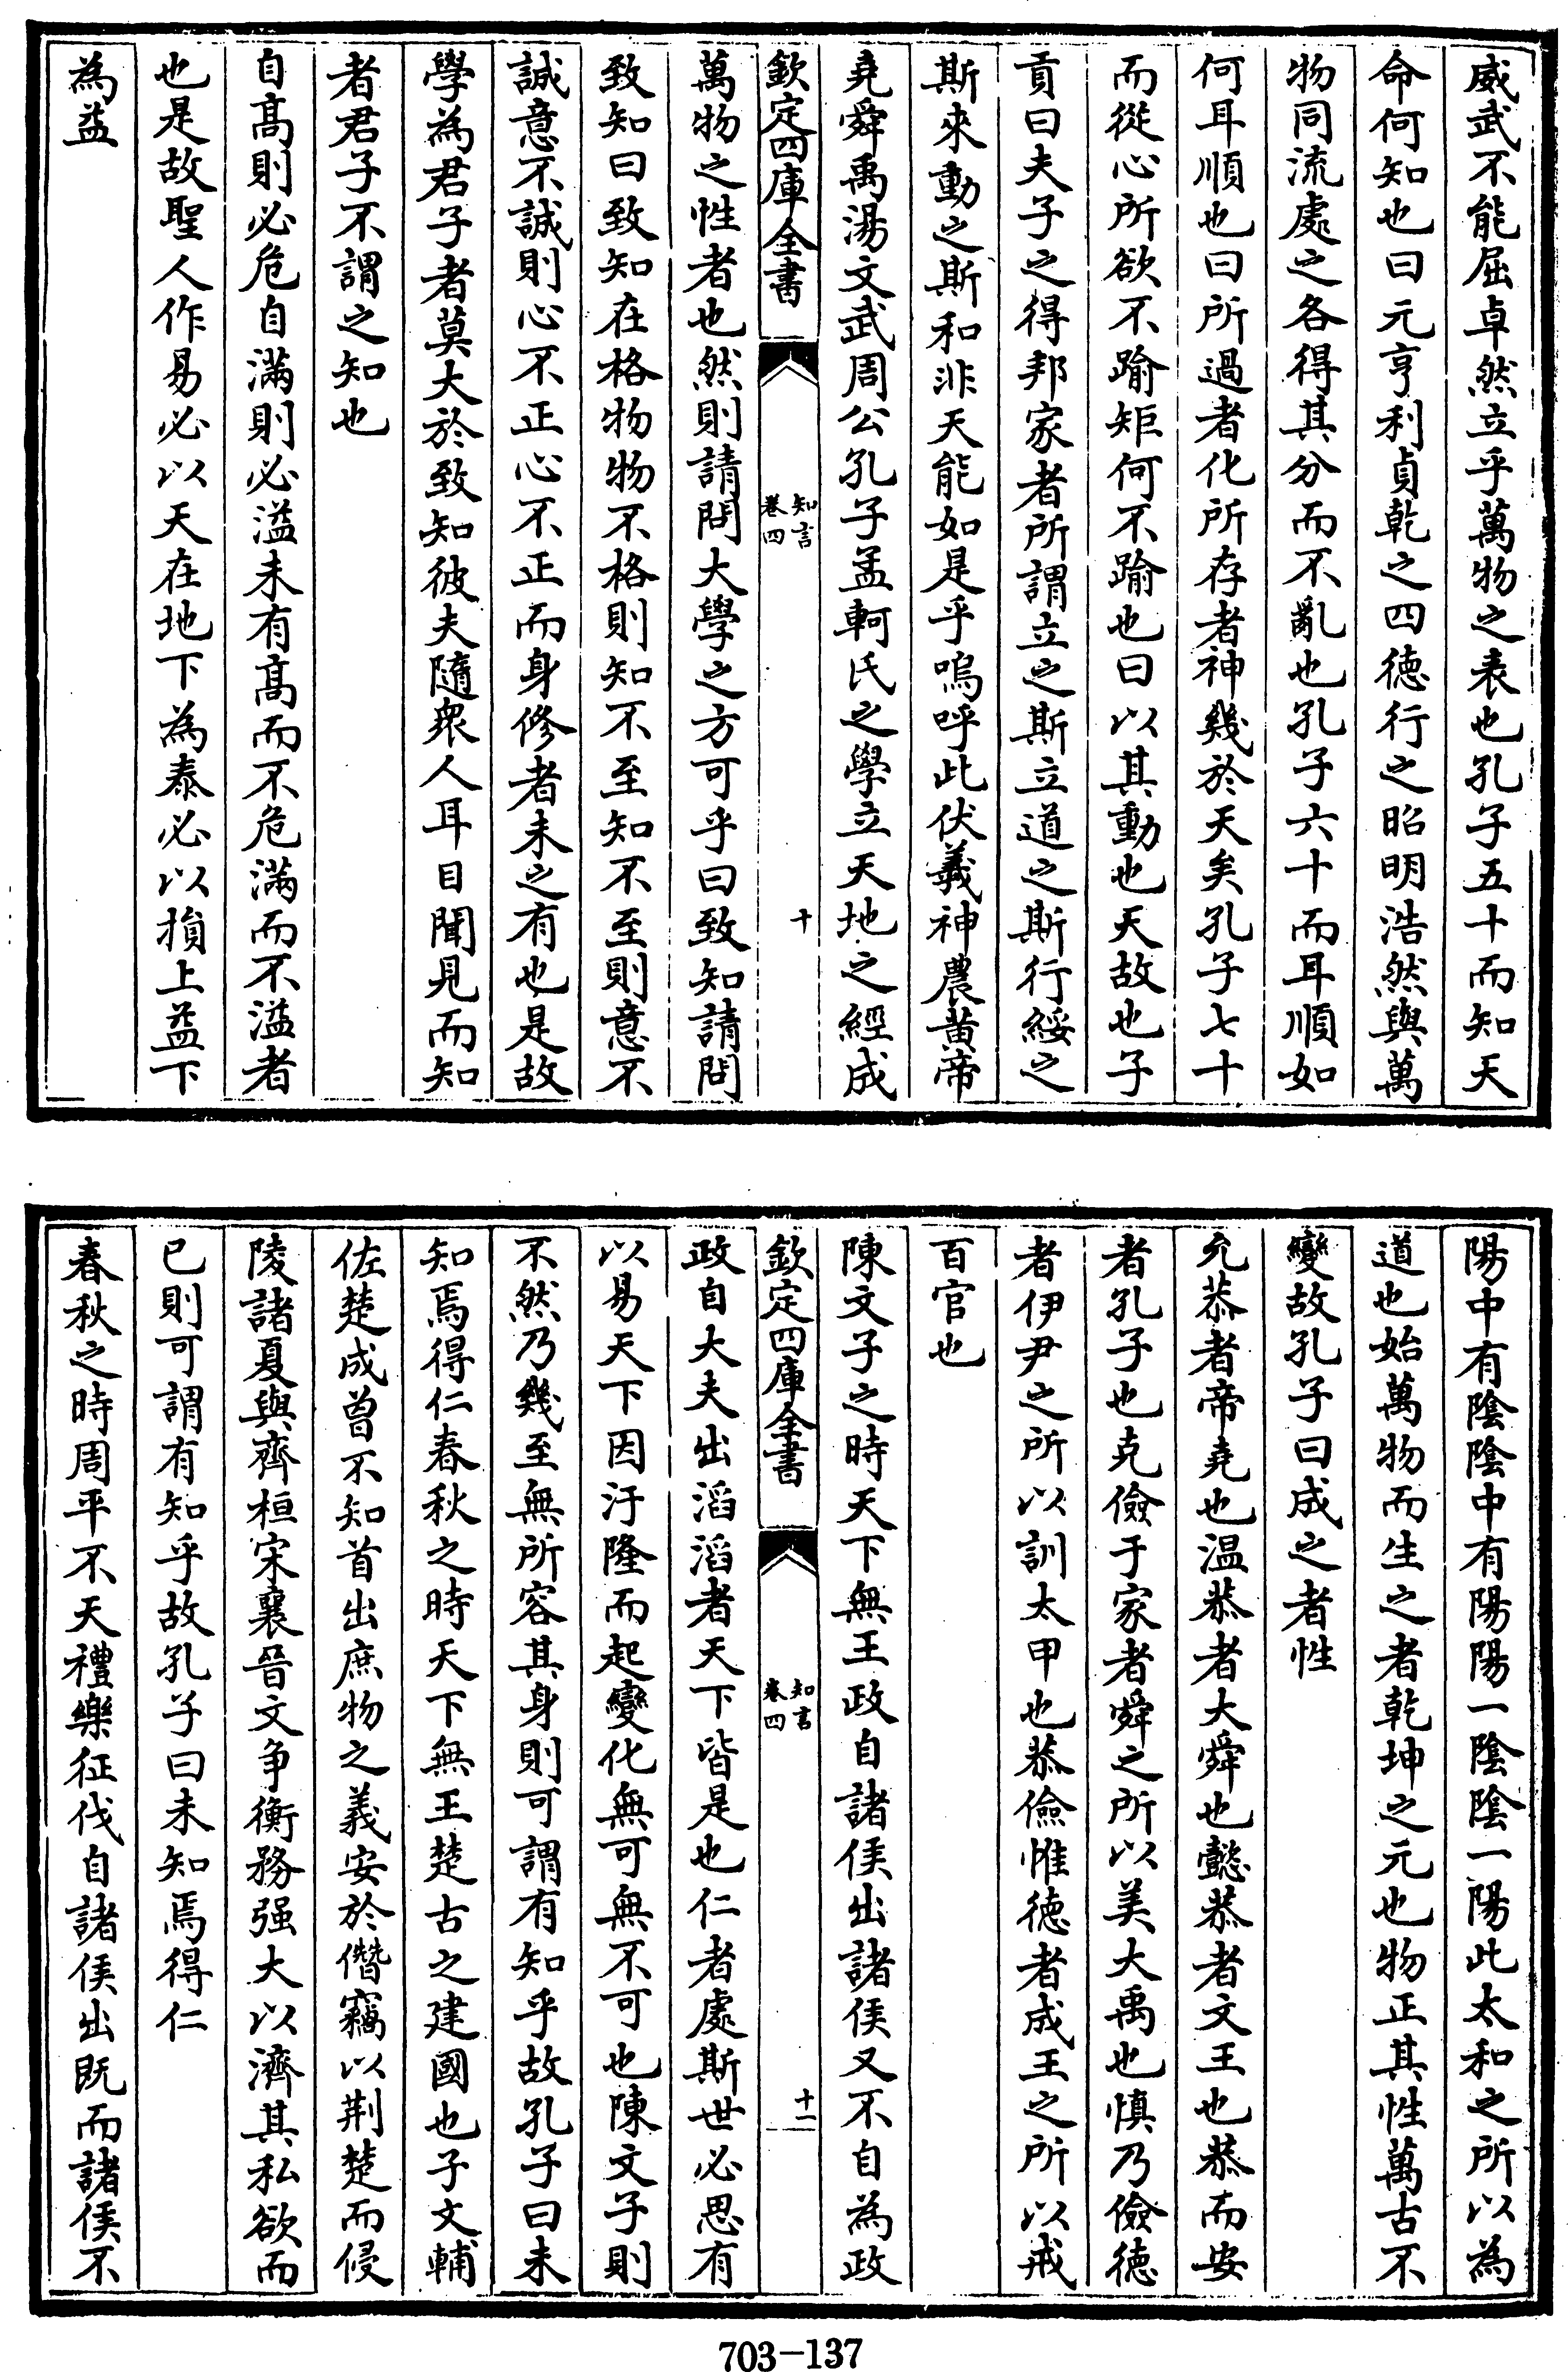 威武不能屈卓然立乎萬物之表也孔子五十而知天
命何知也曰元亨利貞乾之四徳行之昭明浩然與萬
物同流處之各得其分而不亂也孔子六十而耳順如
何耳順也曰所過者化所存者神幾於天矣孔子七十
而從心所欲不踰矩何不踰也曰以其動也天故也子
貢曰夫子之得邦家者所謂立之斯立道之斯行綏之
斯來動之斯和非天能如是乎嗚呼此伏羲神農黄帝
堯舜禹湯文武周公孔子孟軻氏之學立天地之經成
欽定四庫全書
知言
卷四
十
萬物之性者也然則請問大學之方可乎曰致知請問
致知曰致知在格物物不格則知不至知不至則意不
誠意不誠則心不正心不正而身修者未之有也是故
學為君子者莫大於致知彼夫隨衆人耳目聞見而知
者君子不謂之知也
自髙則必危自滿則必溢未有髙而不危滿而不溢者
也是故聖人作易必以天在地下為泰必以損上益下
為益
陽中有陰陰中有陽陽一陰陰一陽此太和之所以為
道也始萬物而生之者乾坤之元也物正其性萬古不
變故孔子曰成之者性
允恭者帝堯也温恭者大舜也懿恭者文王也恭而安
者孔子也克儉于家者舜之所以美大禹也慎乃儉徳
者伊尹之所以訓太甲也恭儉惟徳者成王之所以戒
百官也
陳文子之時天下無王政自諸侯出諸侯又不自為政
欽定四庫全書
知言
卷四
十一
政自大夫出滔滔者天下皆是也仁者處斯世必思有
以易天下因汙隆而起變化無可無不可也陳文子則
不然乃幾至無所容其身則可謂有知乎故孔子曰未
知焉得仁春秋之時天下無王楚古之建國也子文輔
佐楚成曾不知首出庶物之義安於僭竊以荆楚而侵
陵諸夏與齊桓宋襄晉文争衡務强大以濟其私欲而
已則可謂有知乎故孔子曰未知焉得仁
春秋之時周平不天禮樂征伐自諸侯出既而諸侯不
703-137